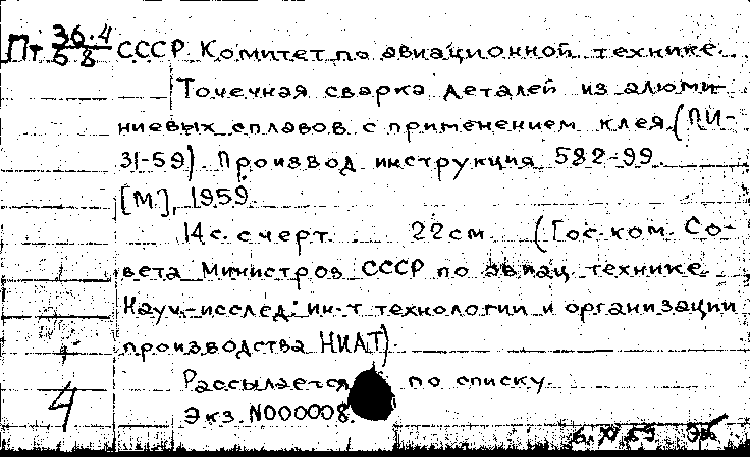 Пт 36.4/58 СССР. Комитет по авиационной технике.
Точечная сварка деталей из алюми-
ниевых сплавов с применением клея (ПИ-
31-59). Производ. инструкция 582-99.
[М.], 1959.
14 с. с черт. 22 см (Гос. ком. Со-
вета Министров СССР по авиац. технике
Науч.-исслед. ин-т технологии и организации
производства НИАТ).
Рассылается по списку
Экз. №000008.
4
6.XI 59